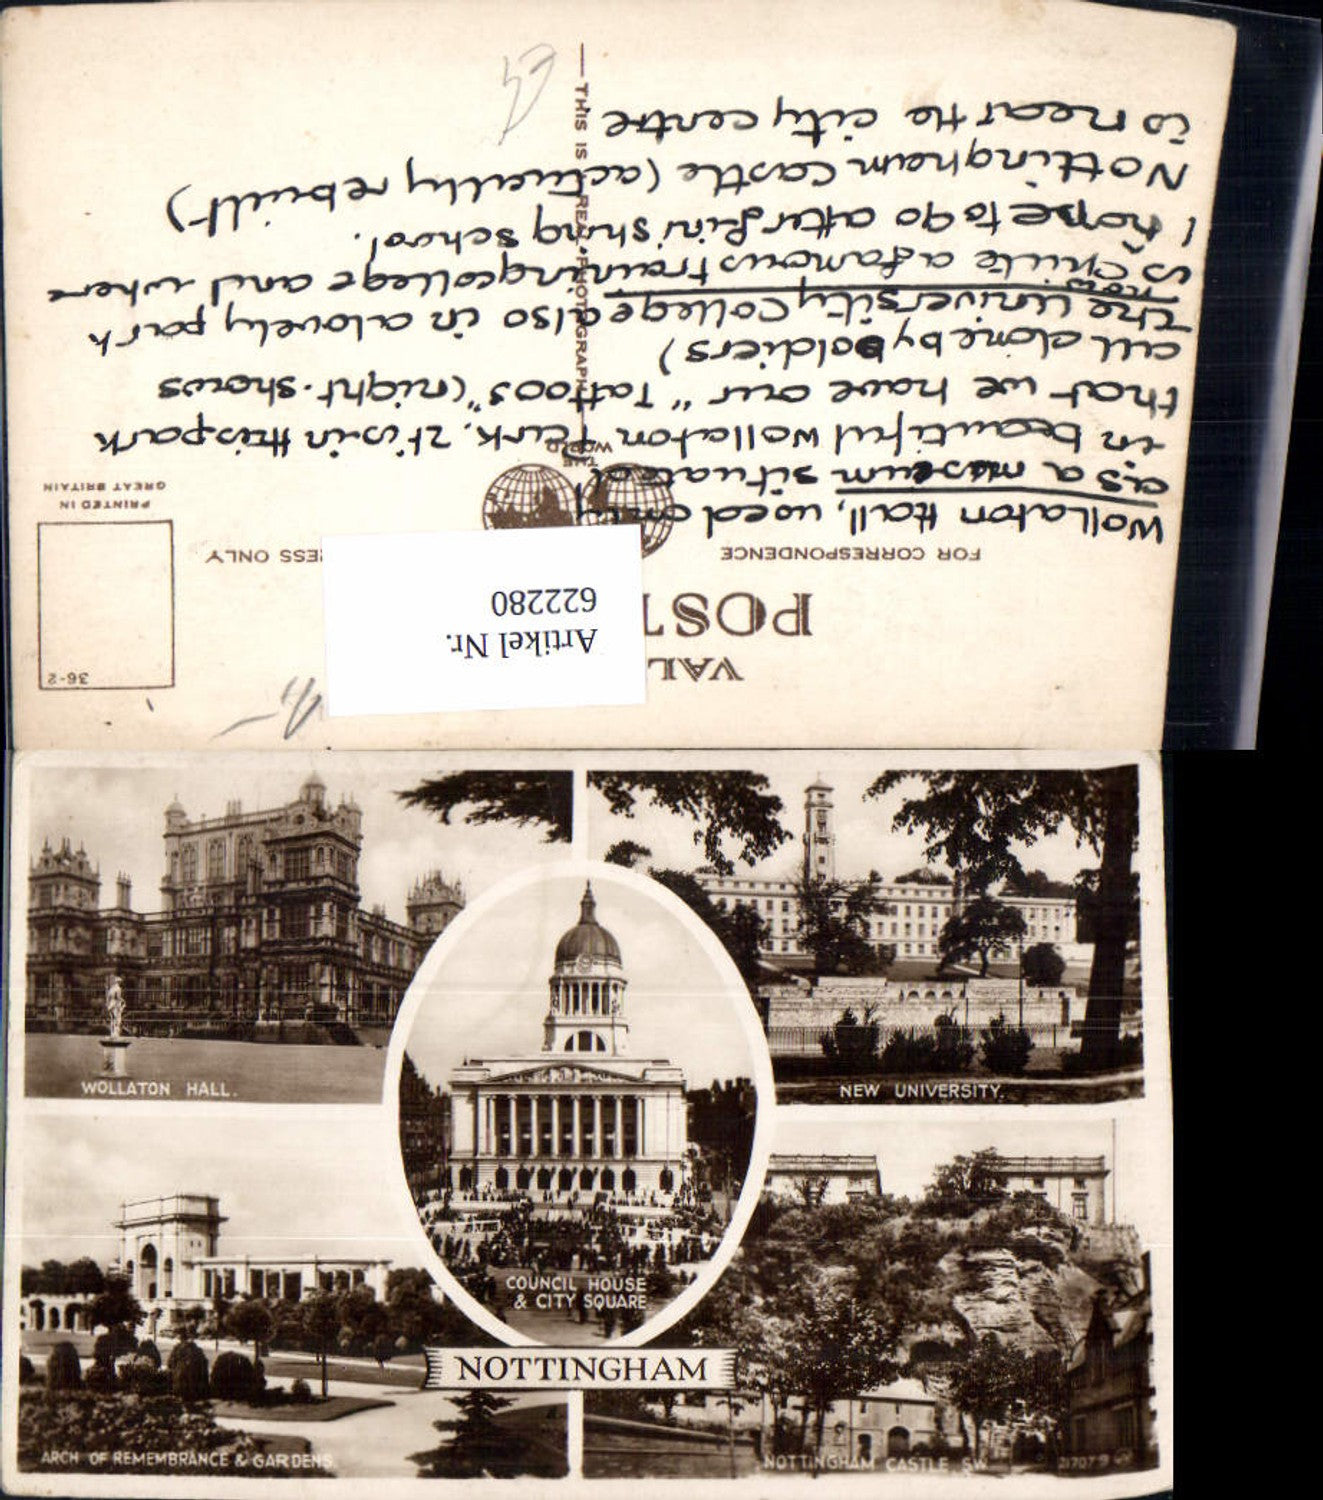 VAL
POST
FOR CORRESPONDENCE
ESS ONLY
36-2
PRINTED IN
GREAT BRITAIN
THE
WORLD
THIS IS REAL PHOTOGRAPH
Artikel Nr.
622280
Wollaton Hall, used only
as a museum situated
in beautiful Wollaton Park. It is in this park
that we have our "Tattoos" (night-shows
all done by soldiers)
The University College also in a lovely park
now
is quite a famous training college and where
I hope to go after finishing school.
Nottingham Castle (actually rebuilt)
is near the city centre
WOLLATON HALL.
NEW UNIVERSITY.
COUNCIL HOUSE
& CITY SQUARE
NOTTINGHAM
ARCH OF REMEMBRANCE & GARDENS.
NOTTINGHAM CASTLE. S.W.
21707